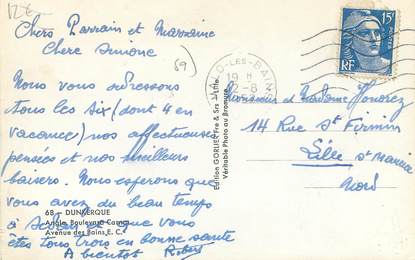 12€
Chers Parrain et Marraine
Chere Simone
59)
Nous vous adressons
tous les six (dont 4 en
vacance) nos affectueuses
pensées et nos meilleurs
baisers. Nous esperons que
vous avez du beau temps
à et que vous
êtes tous trois en bonne santé
A bientôt Robert
68 - DUNKERQUE
Angle Boulevard Carnot
Avenue des Bains E. C.
Edition GORLIER Fre & Srs - Lille
Véritable Photo au Bromure
MALO-LES-BAINS
19 H
12-8
15F
RF
Monsieur et Madame Honorez
14 Rue St Firmin
Lille St Maurice
Nord